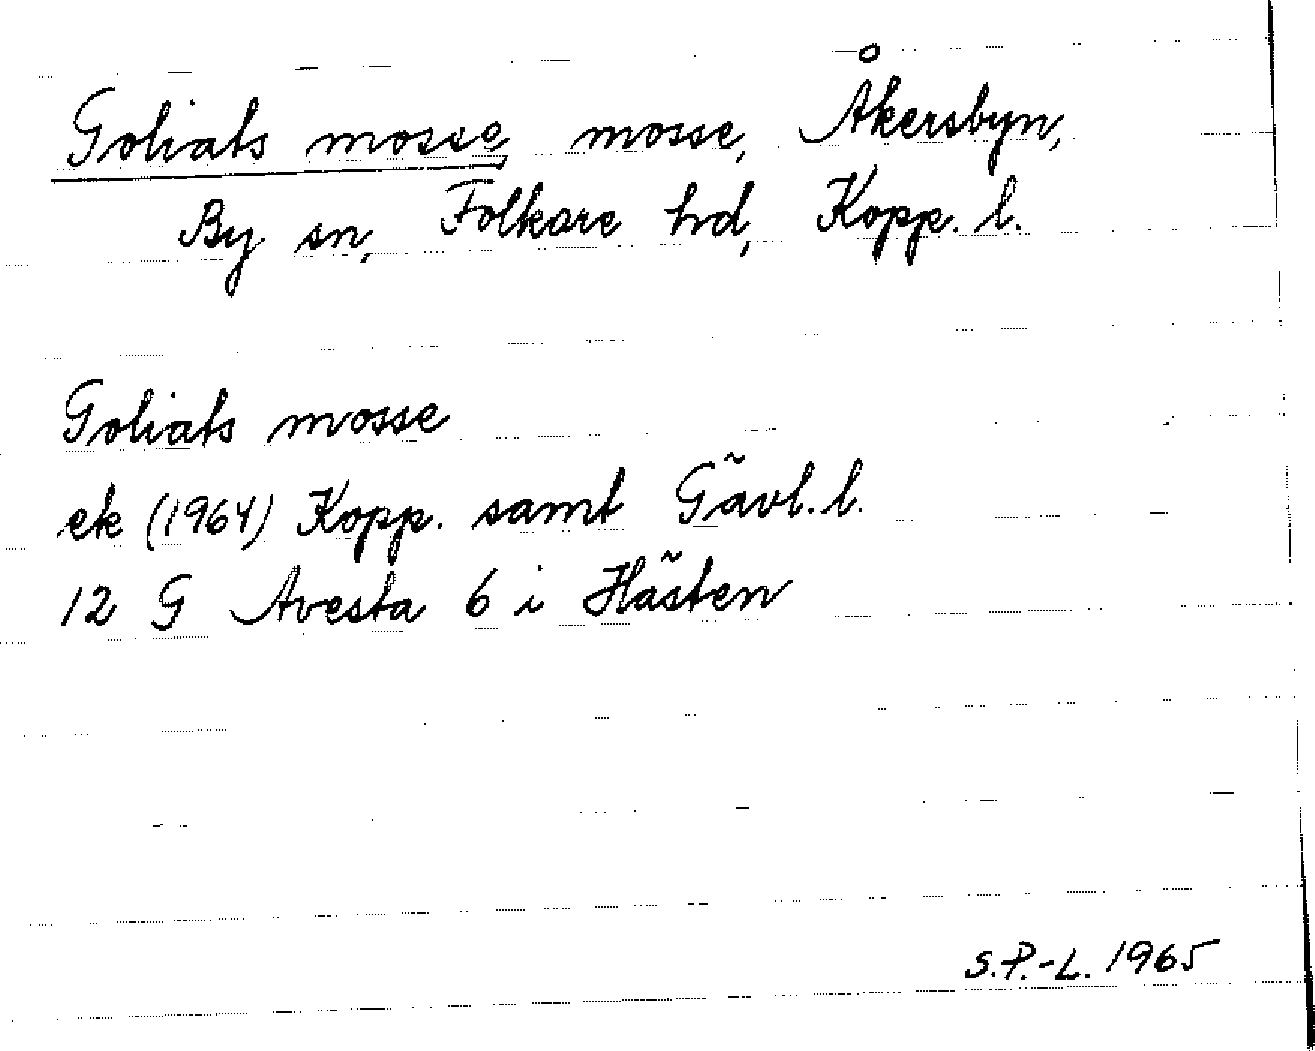 Goliats mosse mosse, Åkersbyn,
By sn, Folkare hd, Kopp. l.
Goliats mosse
ek (1964) Kopp. samt Gävl. l.
12 G Avesta 6 i Hästen
S.P.-L. 1965